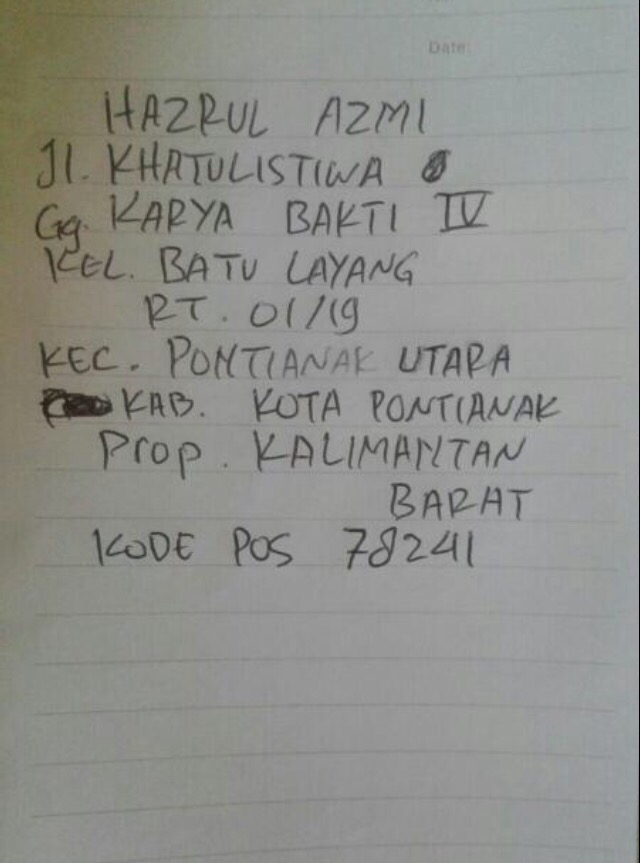 Date:
HAZRUL AZMI
Jl. KHATULISTIWA
Gg. KARYA BAKTI IV
KEL. BATU LAYANG
RT. 01/19
KEC. PONTIANAK UTARA
KAB. KOTA PONTIANAK
Prop. KALIMANTAN
BARAT
KODE POS 78241